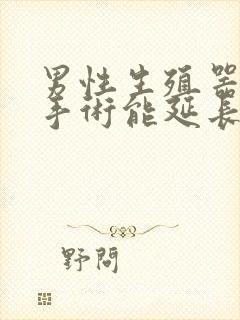 男性生殖器
手術能延長
野問